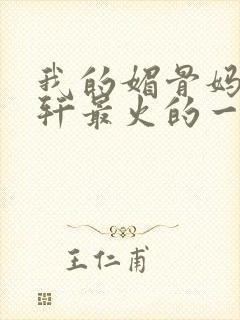 我的媚骨妈
轩最火的一
王仁甫